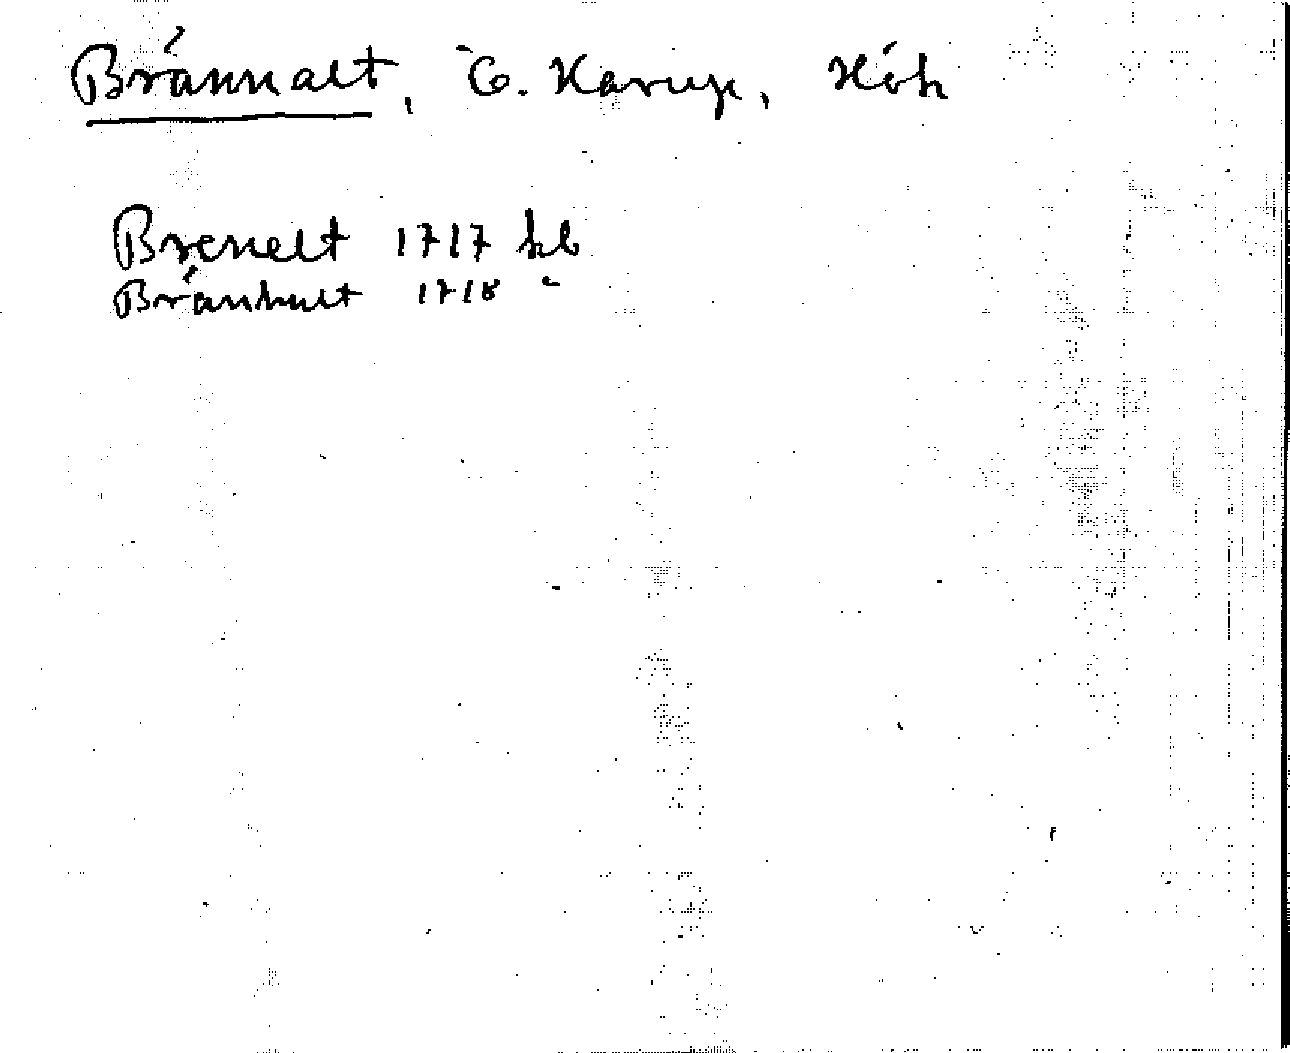 Brännalt, Ö. Karup, Hök
Brenelt 1717 kb
Bränhult 1718 "